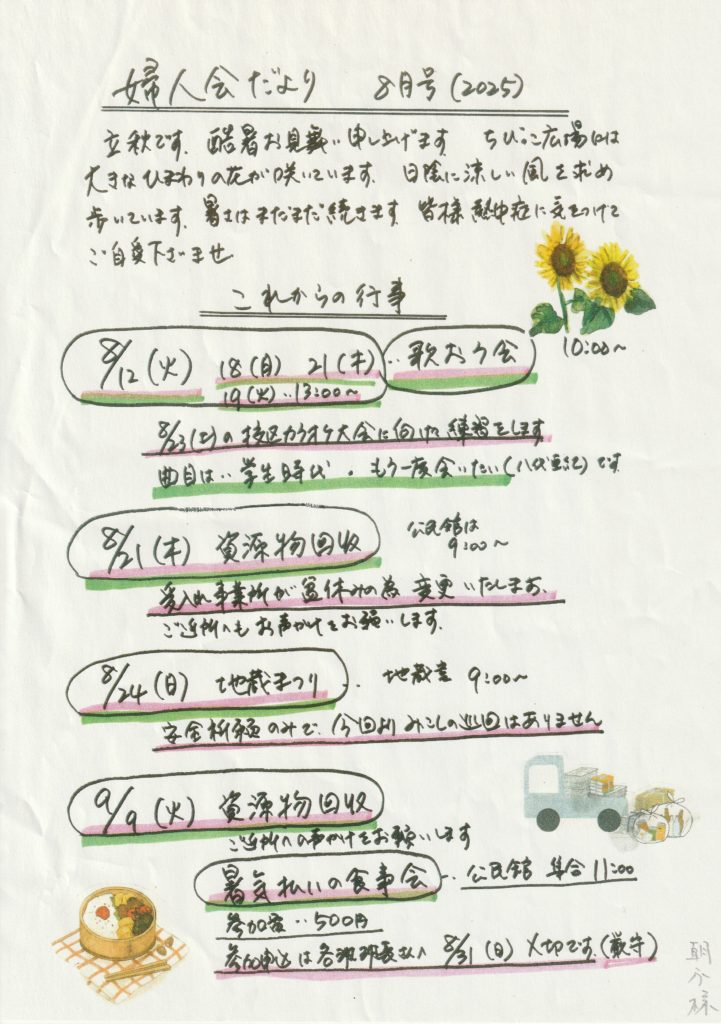 婦人会だより　8月号(2025)
立秋です。酷暑お見舞い申し上げます　ちびっこ広場には
大きなひまわりの花が咲いています。日陰に涼しい風を求め
歩いています。暑さはまだまだ続きます。皆様熱中症に気をつけて
ご自愛下さいませ
これからの行事
8/12(火)　18(月)　21(木)‥歌おう会　10:00〜
19(火)‥13:00〜
8/23(土)の校区カラオケ大会に向けた練習をします
曲目は‥学生時代・もう一度会いたい(八代亜紀)です
8/21(木)　資源物回収　公民館は
9:00〜
受入れ事業所が盆休みの為　変更いたします。
ご近所へもお声かけをお願いします。
8/24(日)　地蔵まつり‥地蔵堂　9:00〜
安全祈願のみで、今回よりみこしの巡回はありません
9/9(火)　資源物回収
ご近所への声かけをお願いします
暑気払いの食事会‥公民館　集合11:00
参加費‥500円
参加申込は各班班長さんへ　8/31(日)〆切です。(厳守)
様